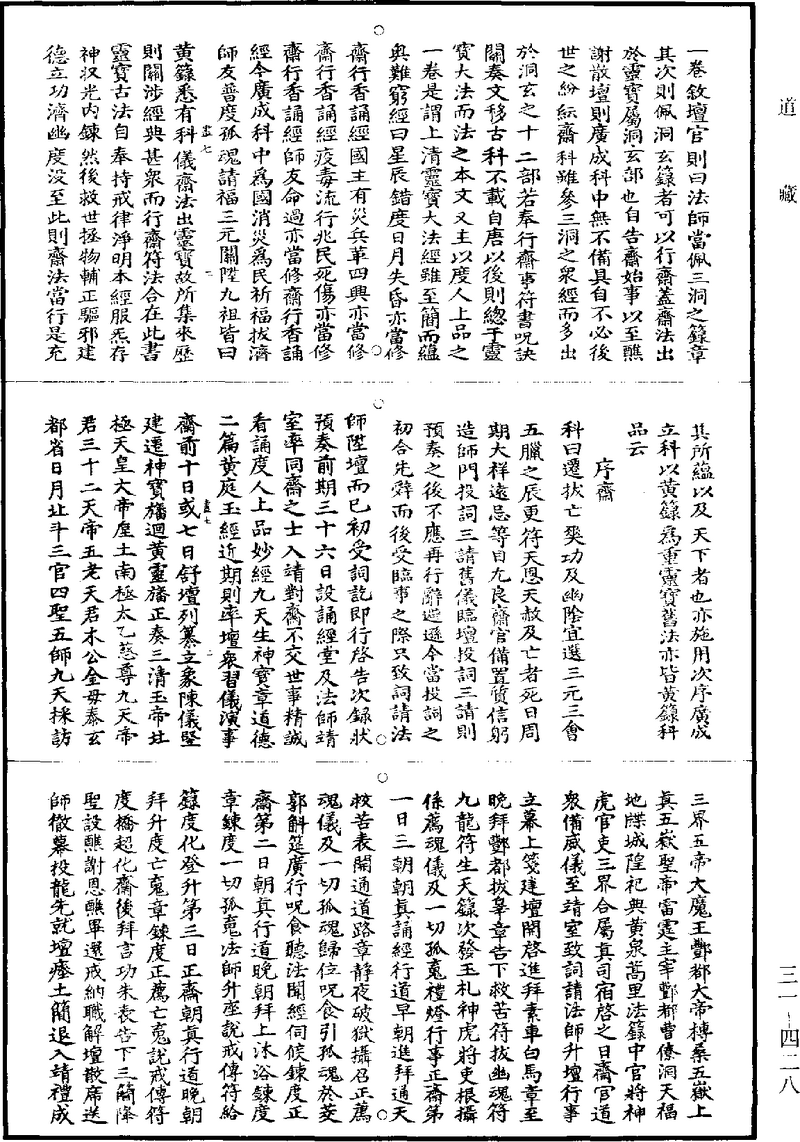 道藏
一卷敘壇官則曰法師當佩三洞之籙章
其次則佩洞玄籙者可以行齋蓋齋法出
於靈寶屬洞玄部也自告齋始事以至醮
謝散壇則廣成科中無不備具自不必後
世之紛紜齋科雖參三洞之衆經而多出
於洞玄之十二部若奉行齋事符書呪訣
關奏文移古科不載自唐以後則總于靈
寶大法而法之本文又主以度人上品之
一卷是謂上清靈寶大法經雖至簡而蘊
奥難窮經曰星辰錯度日月失昏亦當修
齋行香誦經國主有災兵革四興亦當修
齋行香誦經疫毒流行兆民死傷亦當修
齋行香誦經師友命過亦當修齋行香誦
經今廣成科中爲國消災爲民祈福拔濟
師友普度孤魂請福三元關陞九祖皆曰
黄籙悉有科儀齋法出靈寶故所集來歷
則關涉經典甚衆而行齋符法合在此書
靈寶古法自奉持戒律淨明本經服炁存
神収光内鍊然後救世拯物輔正驅邪建
德立功濟幽度没至此則齋法當行是充
其所蘊以及天下者也亦施用次序廣成
立科以黄籙爲重靈寶舊法亦皆黄籙科
品云
序齋
科曰遷拔亡爽功及幽陰宜選三元三會
五臘之辰更符天恩天赦及亡者死日周
期大祥遠忌等日尤良齋官備置質信躬
造師門投詞三請舊儀臨壇投詞三請則
預奏之後不應再行辭遜今當投詞之
初合先辭而後受臨事之際只致詞請法
師陞壇而已初受詞訖即行啓告次錄狀
預奏前期三十六日設誦經堂及法師靖
室率同齋之士入靖對齋不交世事精誠
看誦度人上品妙經九天生神寶章道德
二篇黄庭玉經近期則率壇衆習儀演事
齋前十日或七日舒壇列纂立象陳儀竪
建遷神寶旛迴黄靈旛正奏三清玉帝北
極天皇大帝后土南極太乙慈尊九天帝
君三十二天帝五老天君木公金母泰玄
都省日月北斗三官四聖五師九天採訪
三界五帝大魔王酆都大帝榑桑五嶽上
真五嶽聖帝雷霆主宰酆都曹僚洞天福
地牒城隍祀典黄泉蒿里法籙中官將神
虎官吏三界合屬真司宿啓之日齋官道
衆備威儀至靖室致詞請法師升壇行事
立幕上箋建壇開啓進拜素車白馬章至
晚拜酆都拔辠章告下救苦符拔幽魂符
九龍符生天籙次發玉札神虎將吏根攝
係薦魂儀及一切孤䰟禮燈行事正齋第
一日三朝朝真誦經行道早朝進拜通天
救苦表開通道路章静夜破獄攝召正薦
魂儀及一切孤魂歸位呪食引孤魂於菱
郭斛筵廣行呪食聽法聞經伺候鍊度正
齋第二日朝真行道晚朝拜上沐浴鍊度
章鍊度一切孤䰟法師升座説戒傳符給
籙度化登升第三日正齋朝真行道晚朝
拜升度亡䰟章鍊度正薦亡䰟説戒傳符
度橋超化齋後拜言功朱表告下三簡降
聖設醮謝恩醮畢還戒納職解壇散席送
師徹幕投龍先就壇瘞土簡退入靖禮成
盡七
盡七
三一–四二八